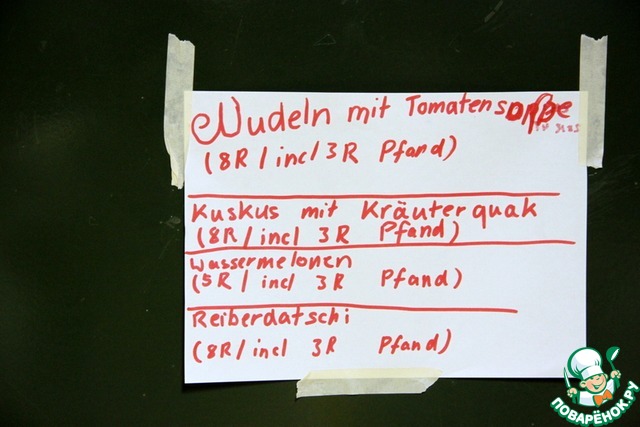 Nudeln mit Tomatensoße
(8R/incl 3R Pfand)
Kuskus mit Kräuterquak
(8R/incl 3R Pfand)
Wassermelonen
(5R/incl 3R Pfand)
Reiberdatschi
(8R/incl 3R Pfand)
ПОВАРЁНОК.РУ